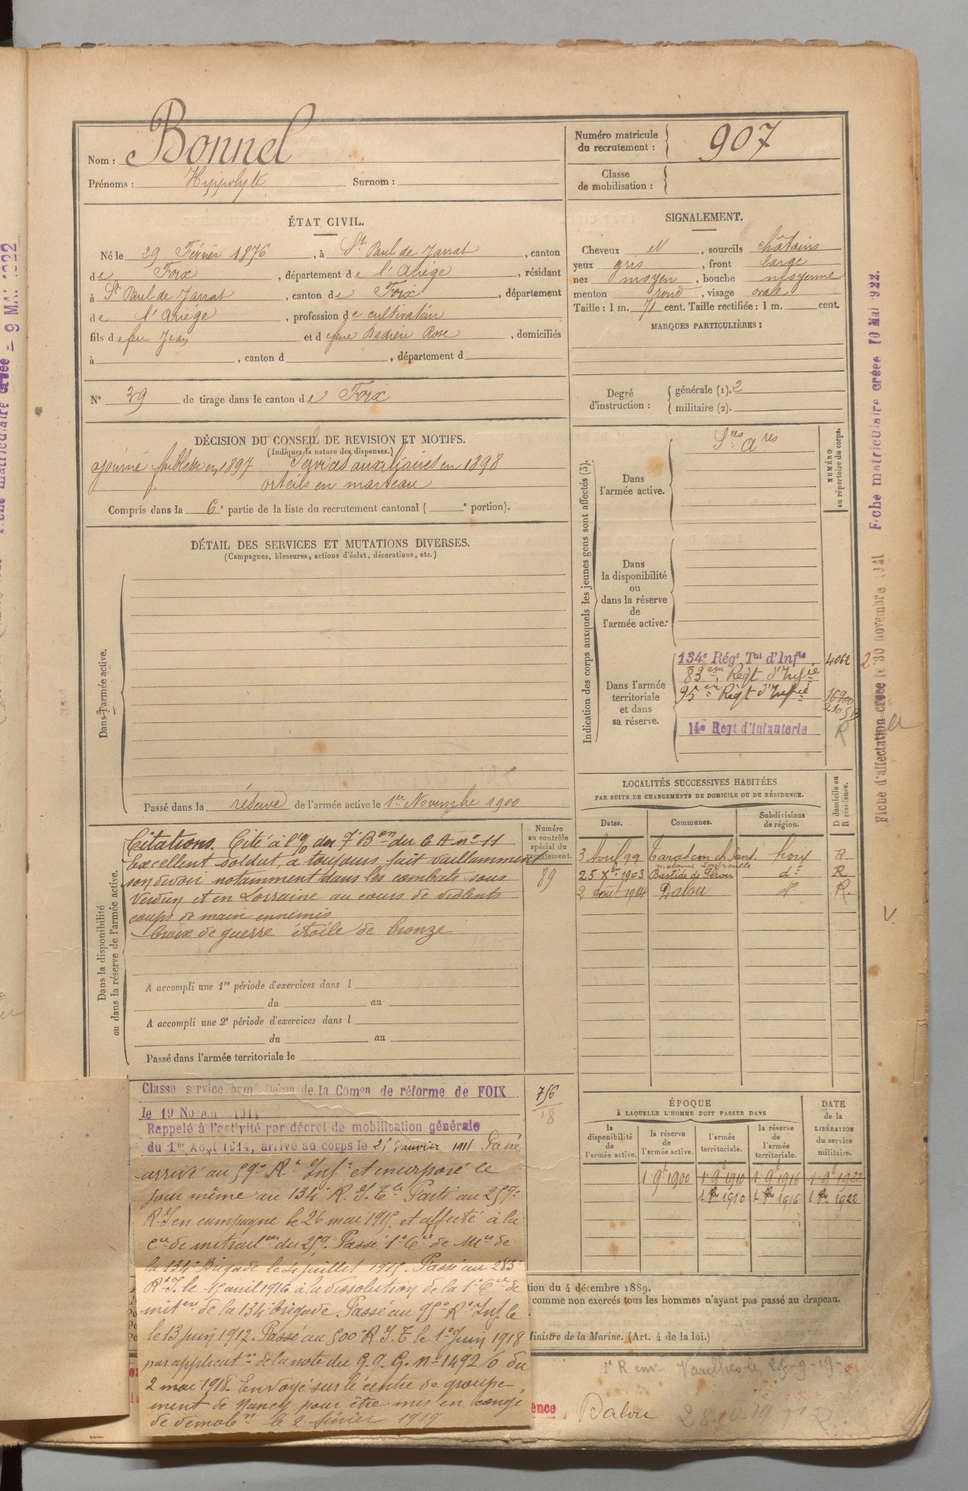 Nom : Bonnel
Prénoms : Hyppolyte Surnom :
Numéro matricule du recrutement : 907
Classe de mobilisation :
ÉTAT CIVIL.
Né le 29 Février 1876, à St Paul de Jarrat, canton
de Foix, département de l'Ariège, résidant
à St Paul de Jarrat, canton de Foix, département
de l'Ariège, profession de cultivateur
fils de feu Jean et de feue Rose, domiciliés
à , canton d , département d
N° 39 de tirage dans le canton de Foix
SIGNALEMENT.
Cheveux et, sourcils châtains
yeux gris, front large
nez moyen, bouche moyenne
menton rond, visage ovale
Taille : 1 m. 71 cent. Taille rectifiée : 1 m. cent.
MARQUES PARTICULIÈRES :
Degré d'instruction : générale (1). 2
militaire (2).
DÉCISION DU CONSEIL DE REVISION ET MOTIFS.
(Indiquer la nature des dispenses.)
ajourné faiblesse en 1897 Services auxiliaires en 1898
orteils en marteau
Compris dans la 6e partie de la liste du recrutement cantonal ( e portion).
DÉTAIL DES SERVICES ET MUTATIONS DIVERSES.
(Campagnes, blessures, actions d'éclat, décorations, etc.)
Dans l'armée active.
Passé dans la réserve de l'armée active le 1er Novembre 1900
Indication des corps auxquels les jeunes gens sont affectés (3).
NUMÉRO au répertoire du corps.
Dans l'armée active.
Dans la disponibilité ou dans la réserve de l'armée active.
Dans l'armée territoriale et dans sa réserve.
134e Régt Tal d'Infie 4062
83em Régt d'Infie
95em Régt d'Infie
14e Regt d'Infanterie R
Dans la disponibilité ou dans la réserve de l'armée active.
Numéro au contrôle spécial du recrutement.
89
Citations. Cité à l'o/ du 7e Bon du 6 A n° 11
Excellent soldat a toujours fait vaillamment
son devoir notamment dans les combats sous
Verdun et en Lorraine au cours de violents
coups de main ennemis
Croix de guerre étoile de bronze
A accompli une 1re période d'exercices dans l
du au
A accompli une 2e période d'exercices dans l
du au
Passé dans l'armée territoriale le
LOCALITÉS SUCCESSIVES HABITÉES
PAR SUITE DE CHANGEMENTS DE DOMICILE OU DE RÉSIDENCE.
Dates. Communes. Subdivisions de région. D domicile ou R résidence.
3 Avril 99 Foix R.
25 Xbre 1903 Bastide de Sérou do R
2 Août 1914 Dalou do R.
Classe service armé Décon de la Comon de réforme de FOIX
le 19 Novem 1914
Rappelé à l'activité par décret de mobilisation générale
du 1er Août 1914, arrivé au corps le
756
18
arrivé au 59e Rt Infie et incorporé le
jour même au 134e R. I. Tle Parti au 259e
R.I. en campagne le 26 mai 1915 et affecté à la
Cie de mitrailses du 259. Passé 1e Cie de Mses de
la 134e Brigade le juillet 1915. Passé au 283e
Rt I. le avril 1916 à la dissolution de la 1e Cie de
mitses de la 134e brigade. Passé au 95e Rt Inf. le
le 13 juin 1917. Passé au 500 R. I. T. le 1er Juin 1918
par applicatn de la note du G. Q. G. n° 1492/0 du
2 mai 1918. Envoyé sur le centre de groupe-
ment de Nancy pour être mis en congé
de démobon le 2 février 1919
ÉPOQUE
À LAQUELLE L'HOMME DOIT PASSER DANS
la disponibilité de l'armée active.
la réserve de l'armée active.
l'armée territoriale.
la réserve de l'armée territoriale.
DATE de la LIBÉRATION du service militaire.
1 9e 1900 1 9e 1910 1 9e 1916 1 9e 1922
1910 1916 1922
tion du 4 décembre 1889.
comme non exercés tous les hommes n'ayant pas passé au drapeau.
Ministre de la Marine. (Art. 4 de la loi.)
Varilhes le
ence
Dalou
Fiche matriculaire créée 10 Mai 1922.
Fiche d'affectation créée le 30 novembre
Fiche matriculaire créée - 9 MAI 1922